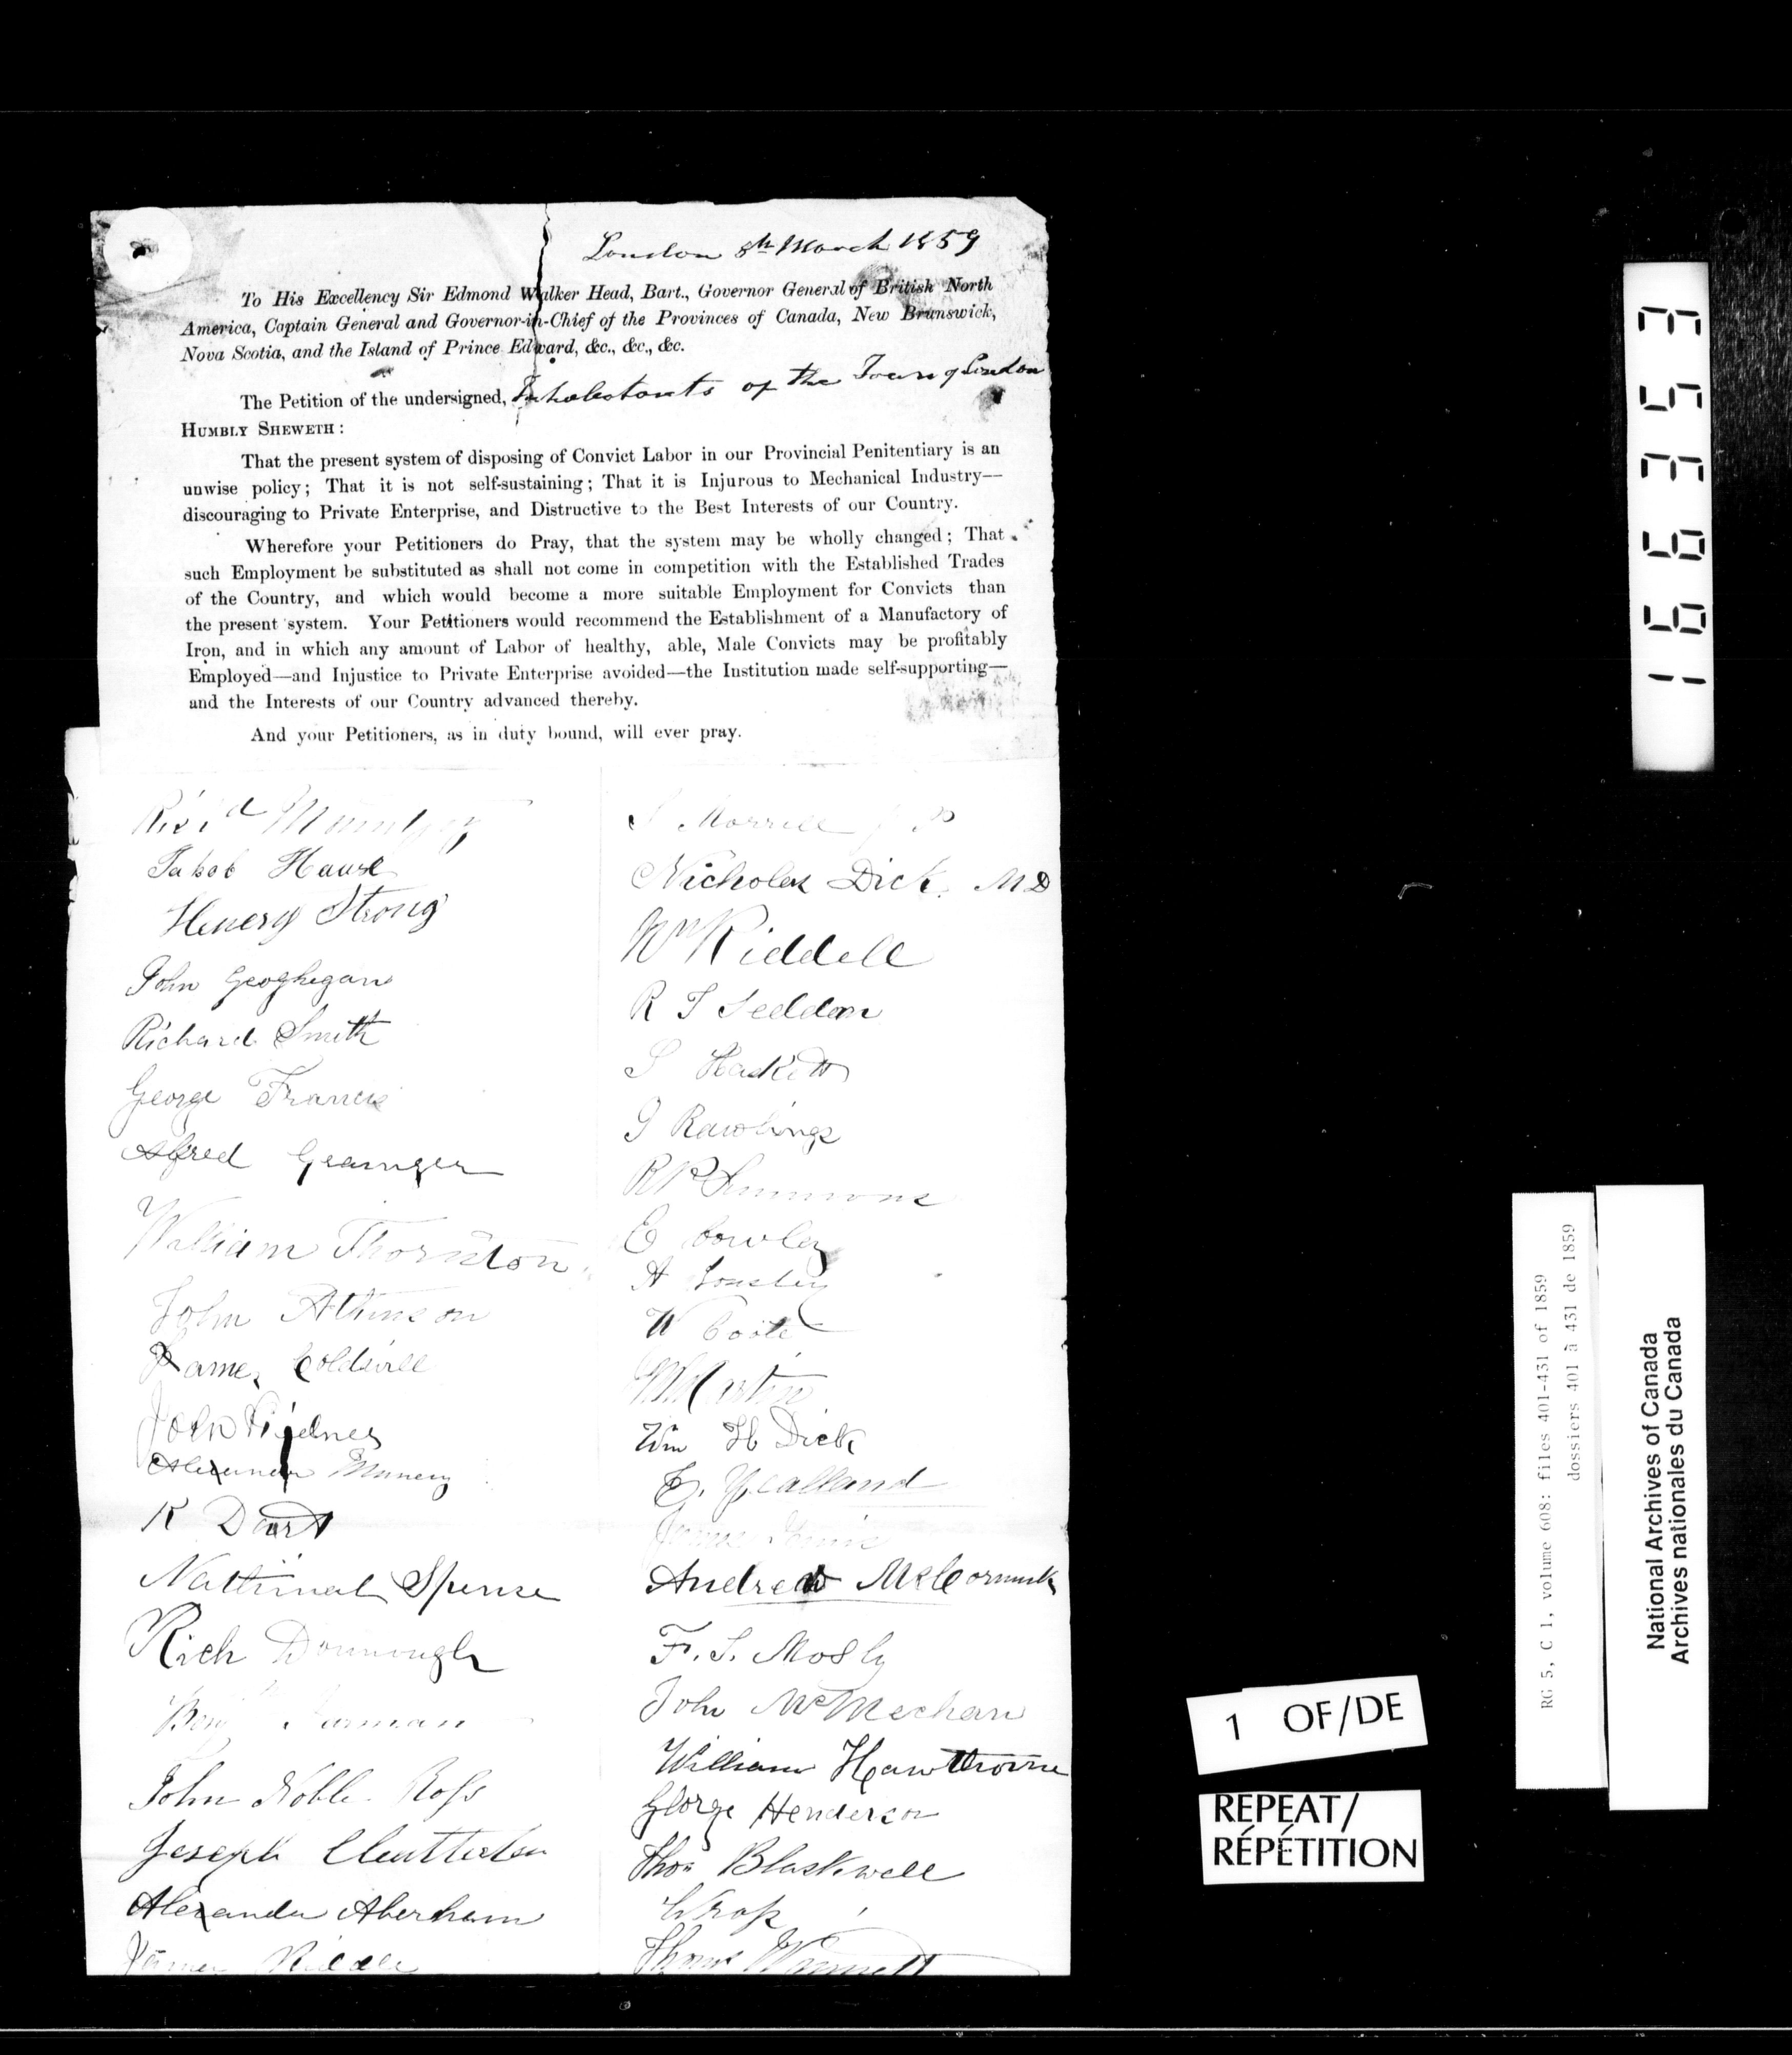 London 8th March 1859
To His Excellency Sir Edmond Walker Head, Bart., Governor General of British North
America, Captain General and Governor-in-Chief of the Provinces of Canada, New Brunswick,
Nova Scotia, and the Island of Prince Edward, &c., &c., &c.
The Petition of the undersigned, Inhabetants of the Town of London
HUMBLY SHEWETH:
That the present system of disposing of Convict Labor in our Provincial Penitentiary is an
unwise policy; That it is not self-sustaining; That it is Injurous to Mechanical Industry—
discouraging to Private Enterprise, and Distructive to the Best Interests of our Country.
Wherefore your Petitioners do Pray, that the system may be wholly changed; That
such Employment be substituted as shall not come in competition with the Established Trades
of the Country, and which would become a more suitable Employment for Convicts than
the present system. Your Petitioners would recommend the Establishment of a Manufactory of
Iron, and in which any amount of Labor of healthy, able, Male Convicts may be profitably
Employed—and Injustice to Private Enterprise avoided—the Institution made self-supporting—
and the Interests of our Country advanced thereby.
And your Petitioners, as in duty bound, will ever pray.
Henery Strong
John Geoghegan
Richard Smith
George Francis
Alfred Grainger
William Thornton
John Atkinson
James
John
Alexander
R Dart
Spense
Rich
John Noble Ross
Joseph
Alexander Aberham
James Riddle
S Morrell J P
Nicholas Dick. MD
Wm Riddell
R T Seddon
S Haskett
J Rawlings
Simmons
E Cowley
A
W Coote
Martin
Wm H Dick
E. Yealland
James
Andrew McCormick
F. S. Mosly
John McMechan
William Hawthorne
George Henderson
Thos Blackwell
Thomas
166353
RG 5, C 1, volume 608: files 401-431 of 1859
dossiers 401 à 431 de 1859
National Archives of Canada
Archives nationales du Canada
1 OF/DE
REPEAT/
RÉPÉTITION